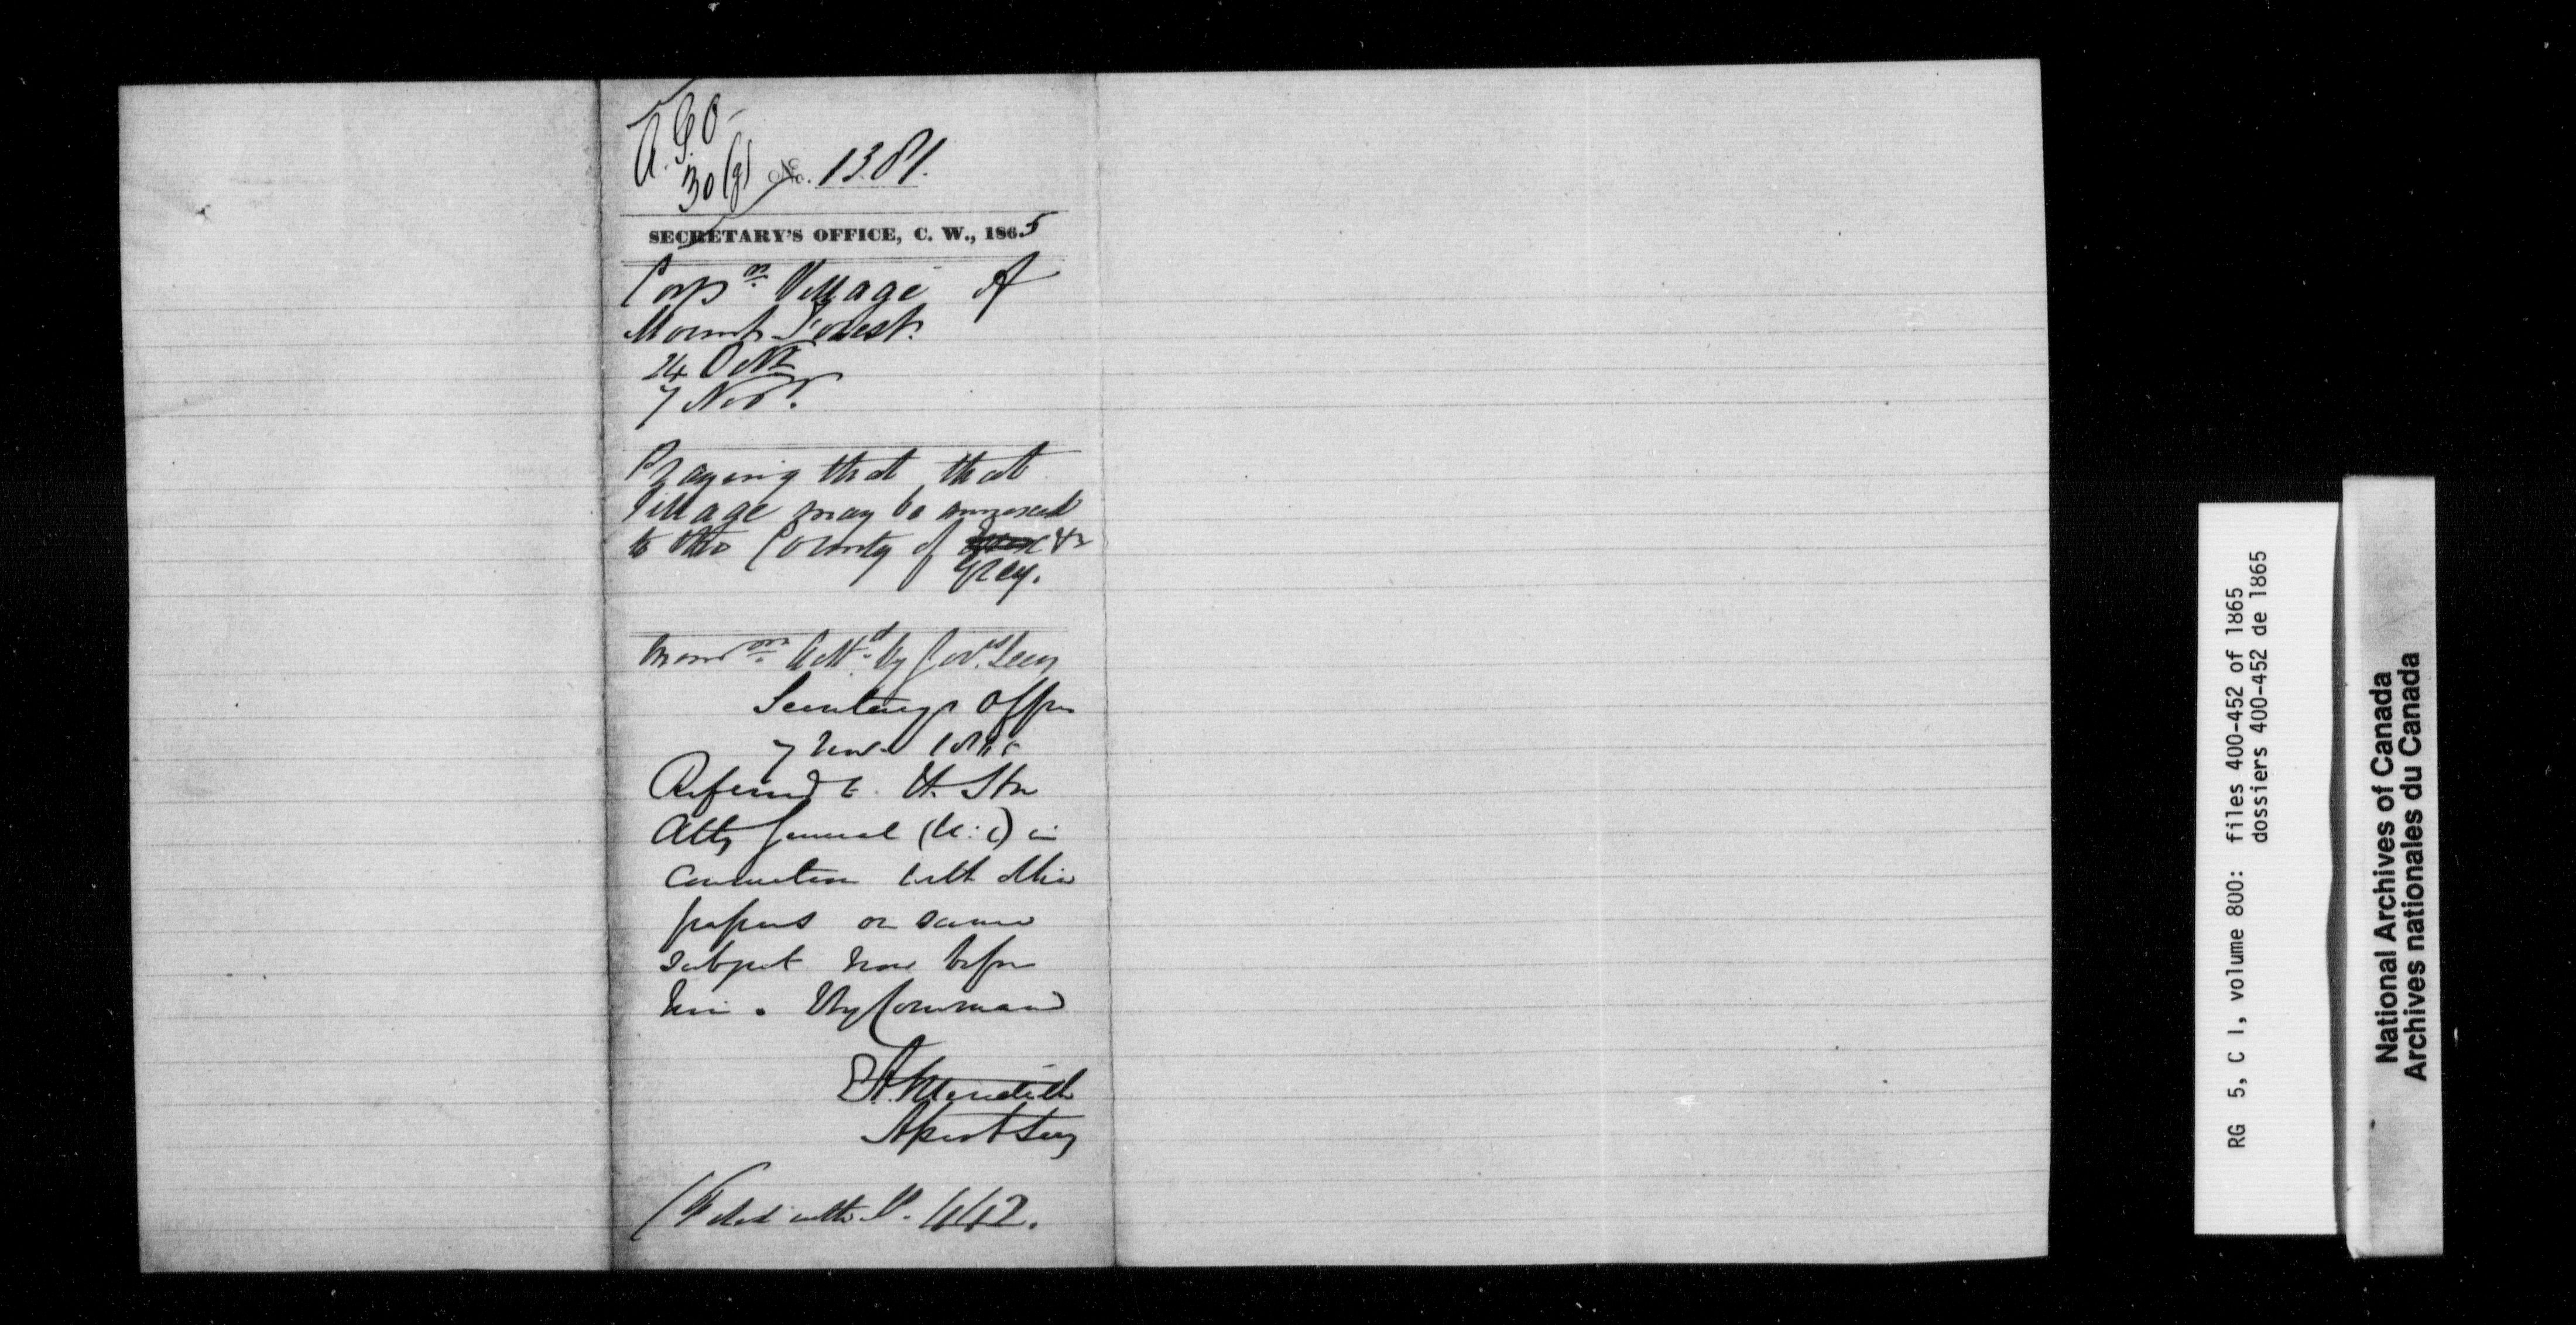 A.G.O-
30(g) No. 1381.
SECRETARY'S OFFICE, C. W., 1865
Corpn. Village of
Mount Forest.
24 Octr
7 Novr.
Praying that that
Village may be annexed
to the County of
Grey.
by Govrs Secy
Secretary's Office
7 Nov. 1865
Referred to H. Hon
Atty General (U:C) in
connection with other
papers on same
subject now before
him. By Command
E.A. Meredith
Asst Secy
(Filed with No. 442.
RG 5, C 1, volume 800: files 400-452 of 1865
dossiers 400-452 de 1865
National Archives of Canada
Archives nationales du Canada